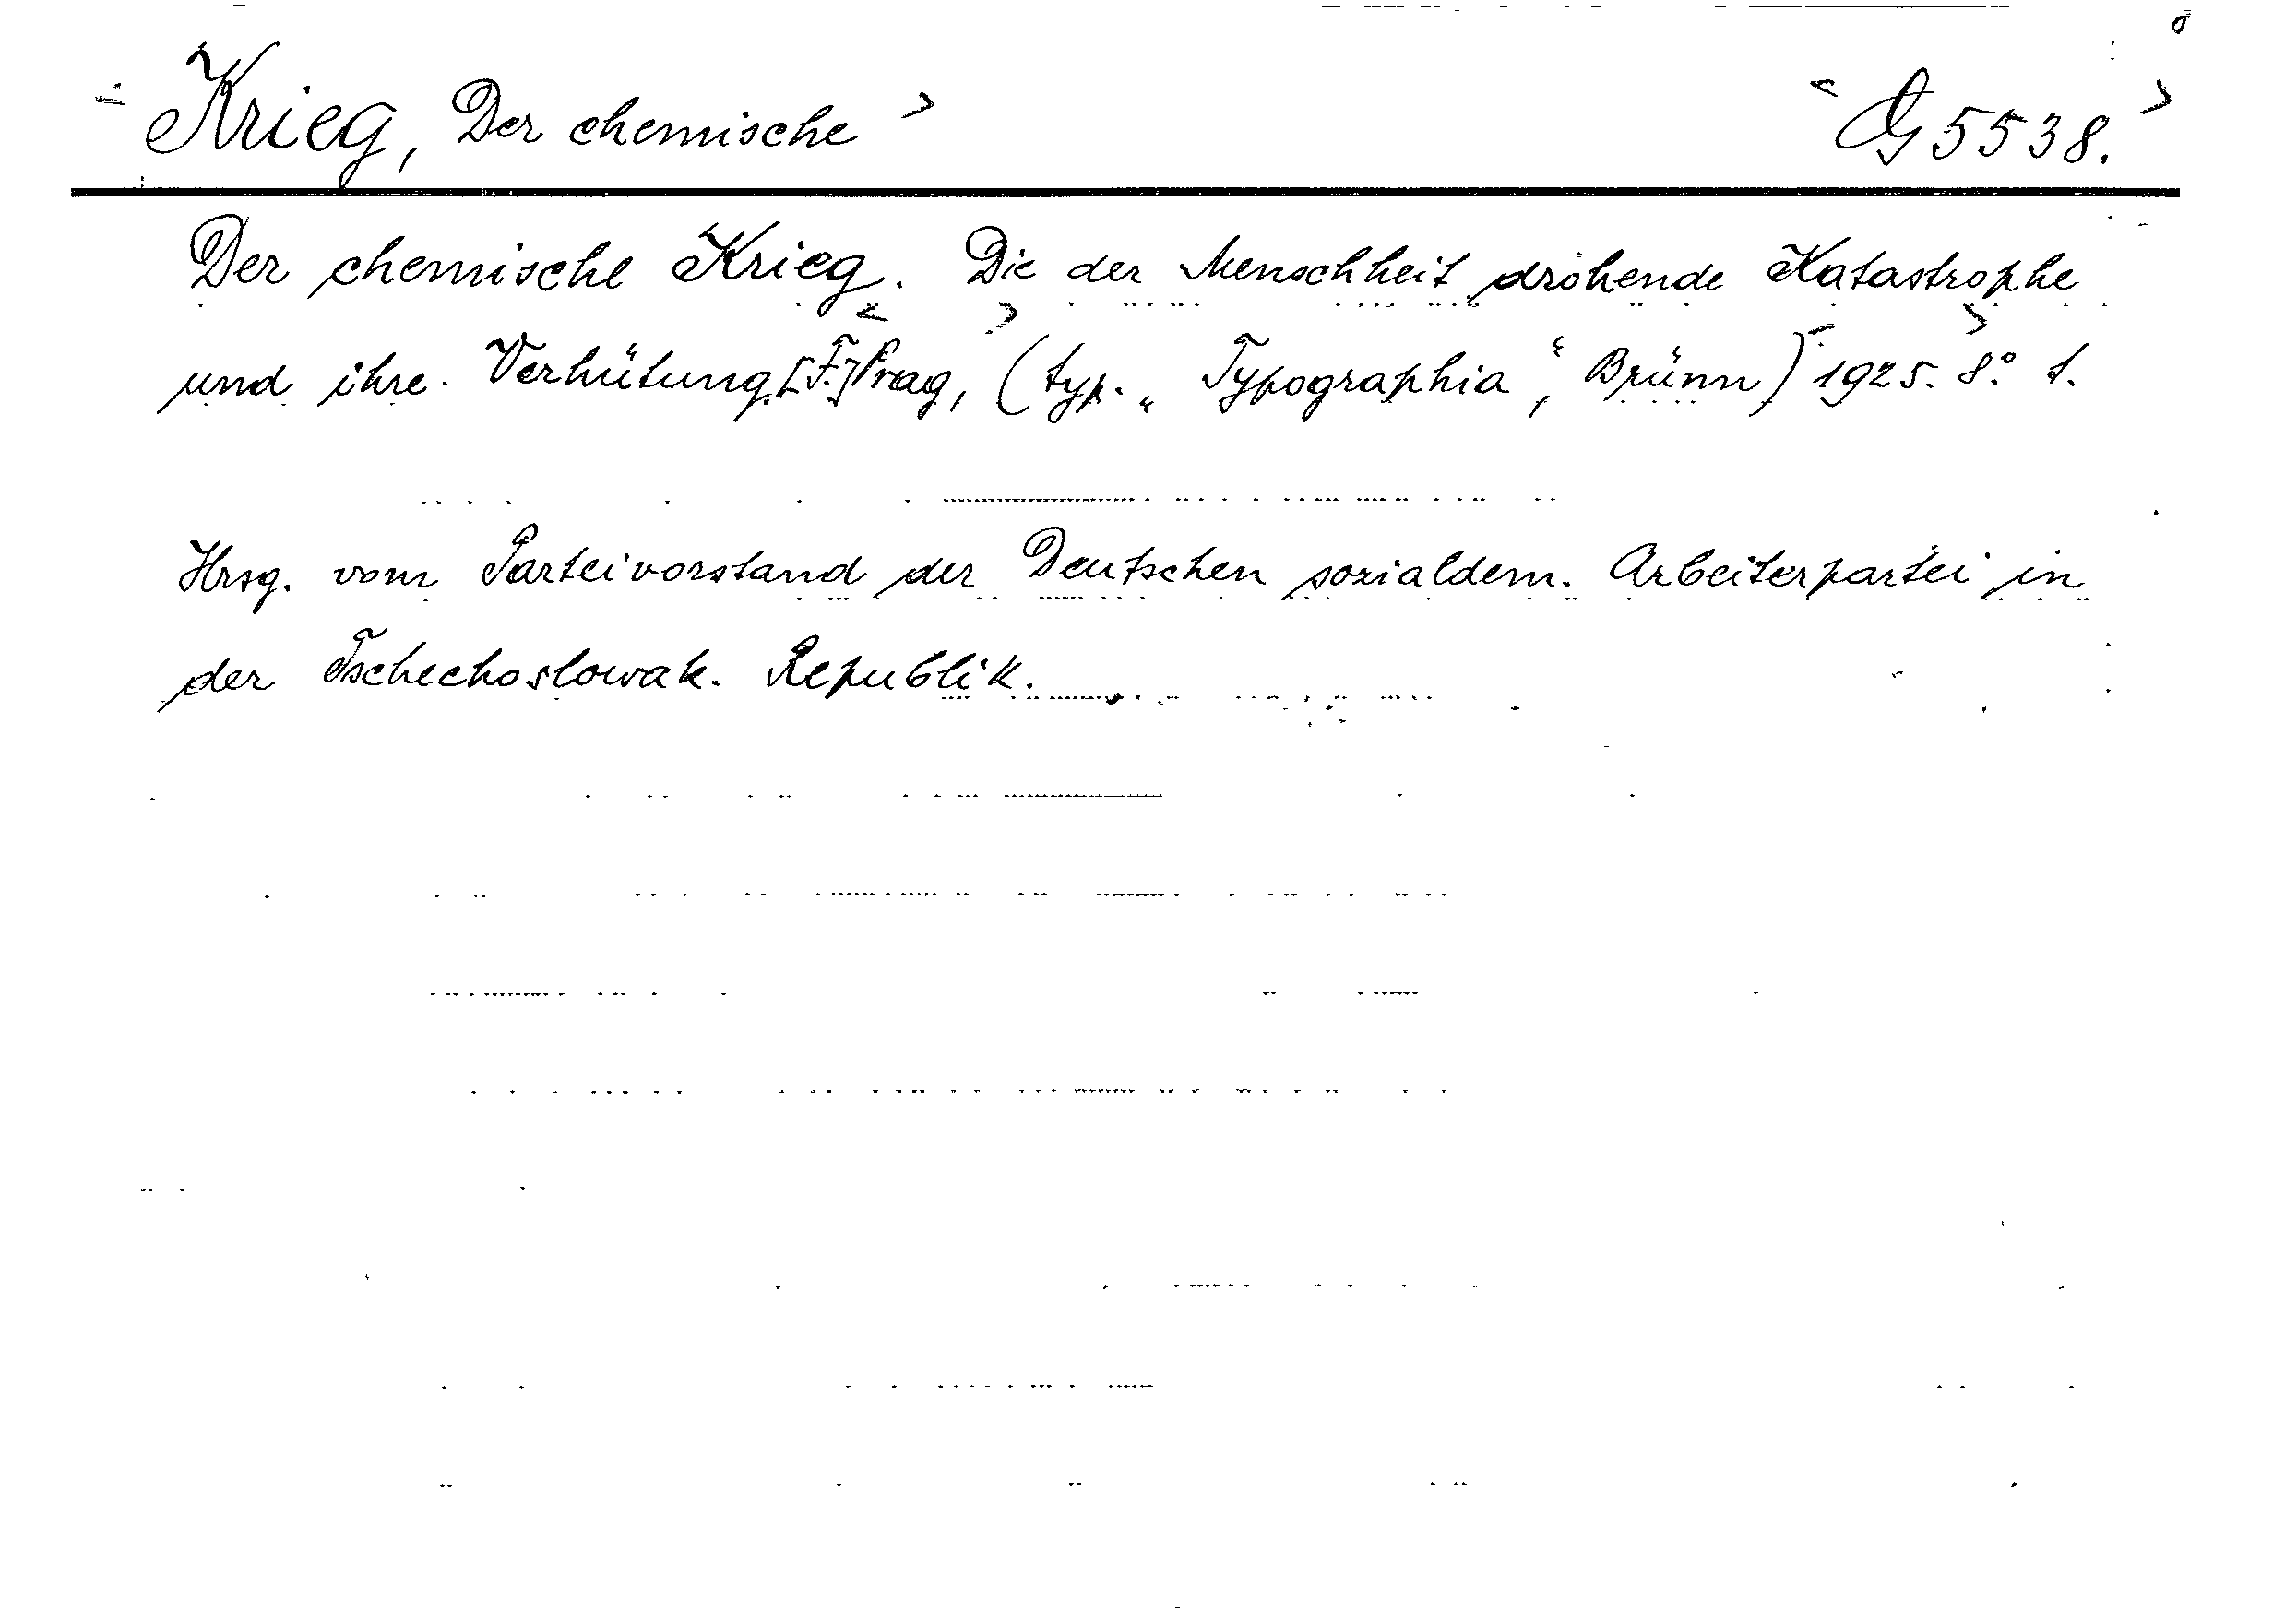 <Krieg, Der chemische> <G 5538.>
Der chemische Krieg. Die der Menschheit drohende Katastrophe
und ihre Verhütung. [F.] <Prag>, (typ. „Typographia“, Brünn) <1925. 8°> 1.
Hrsg. vom Parteivorstand der Deutschen sozialdem. Arbeiterpartei in
der Tschechoslowak. Republik.